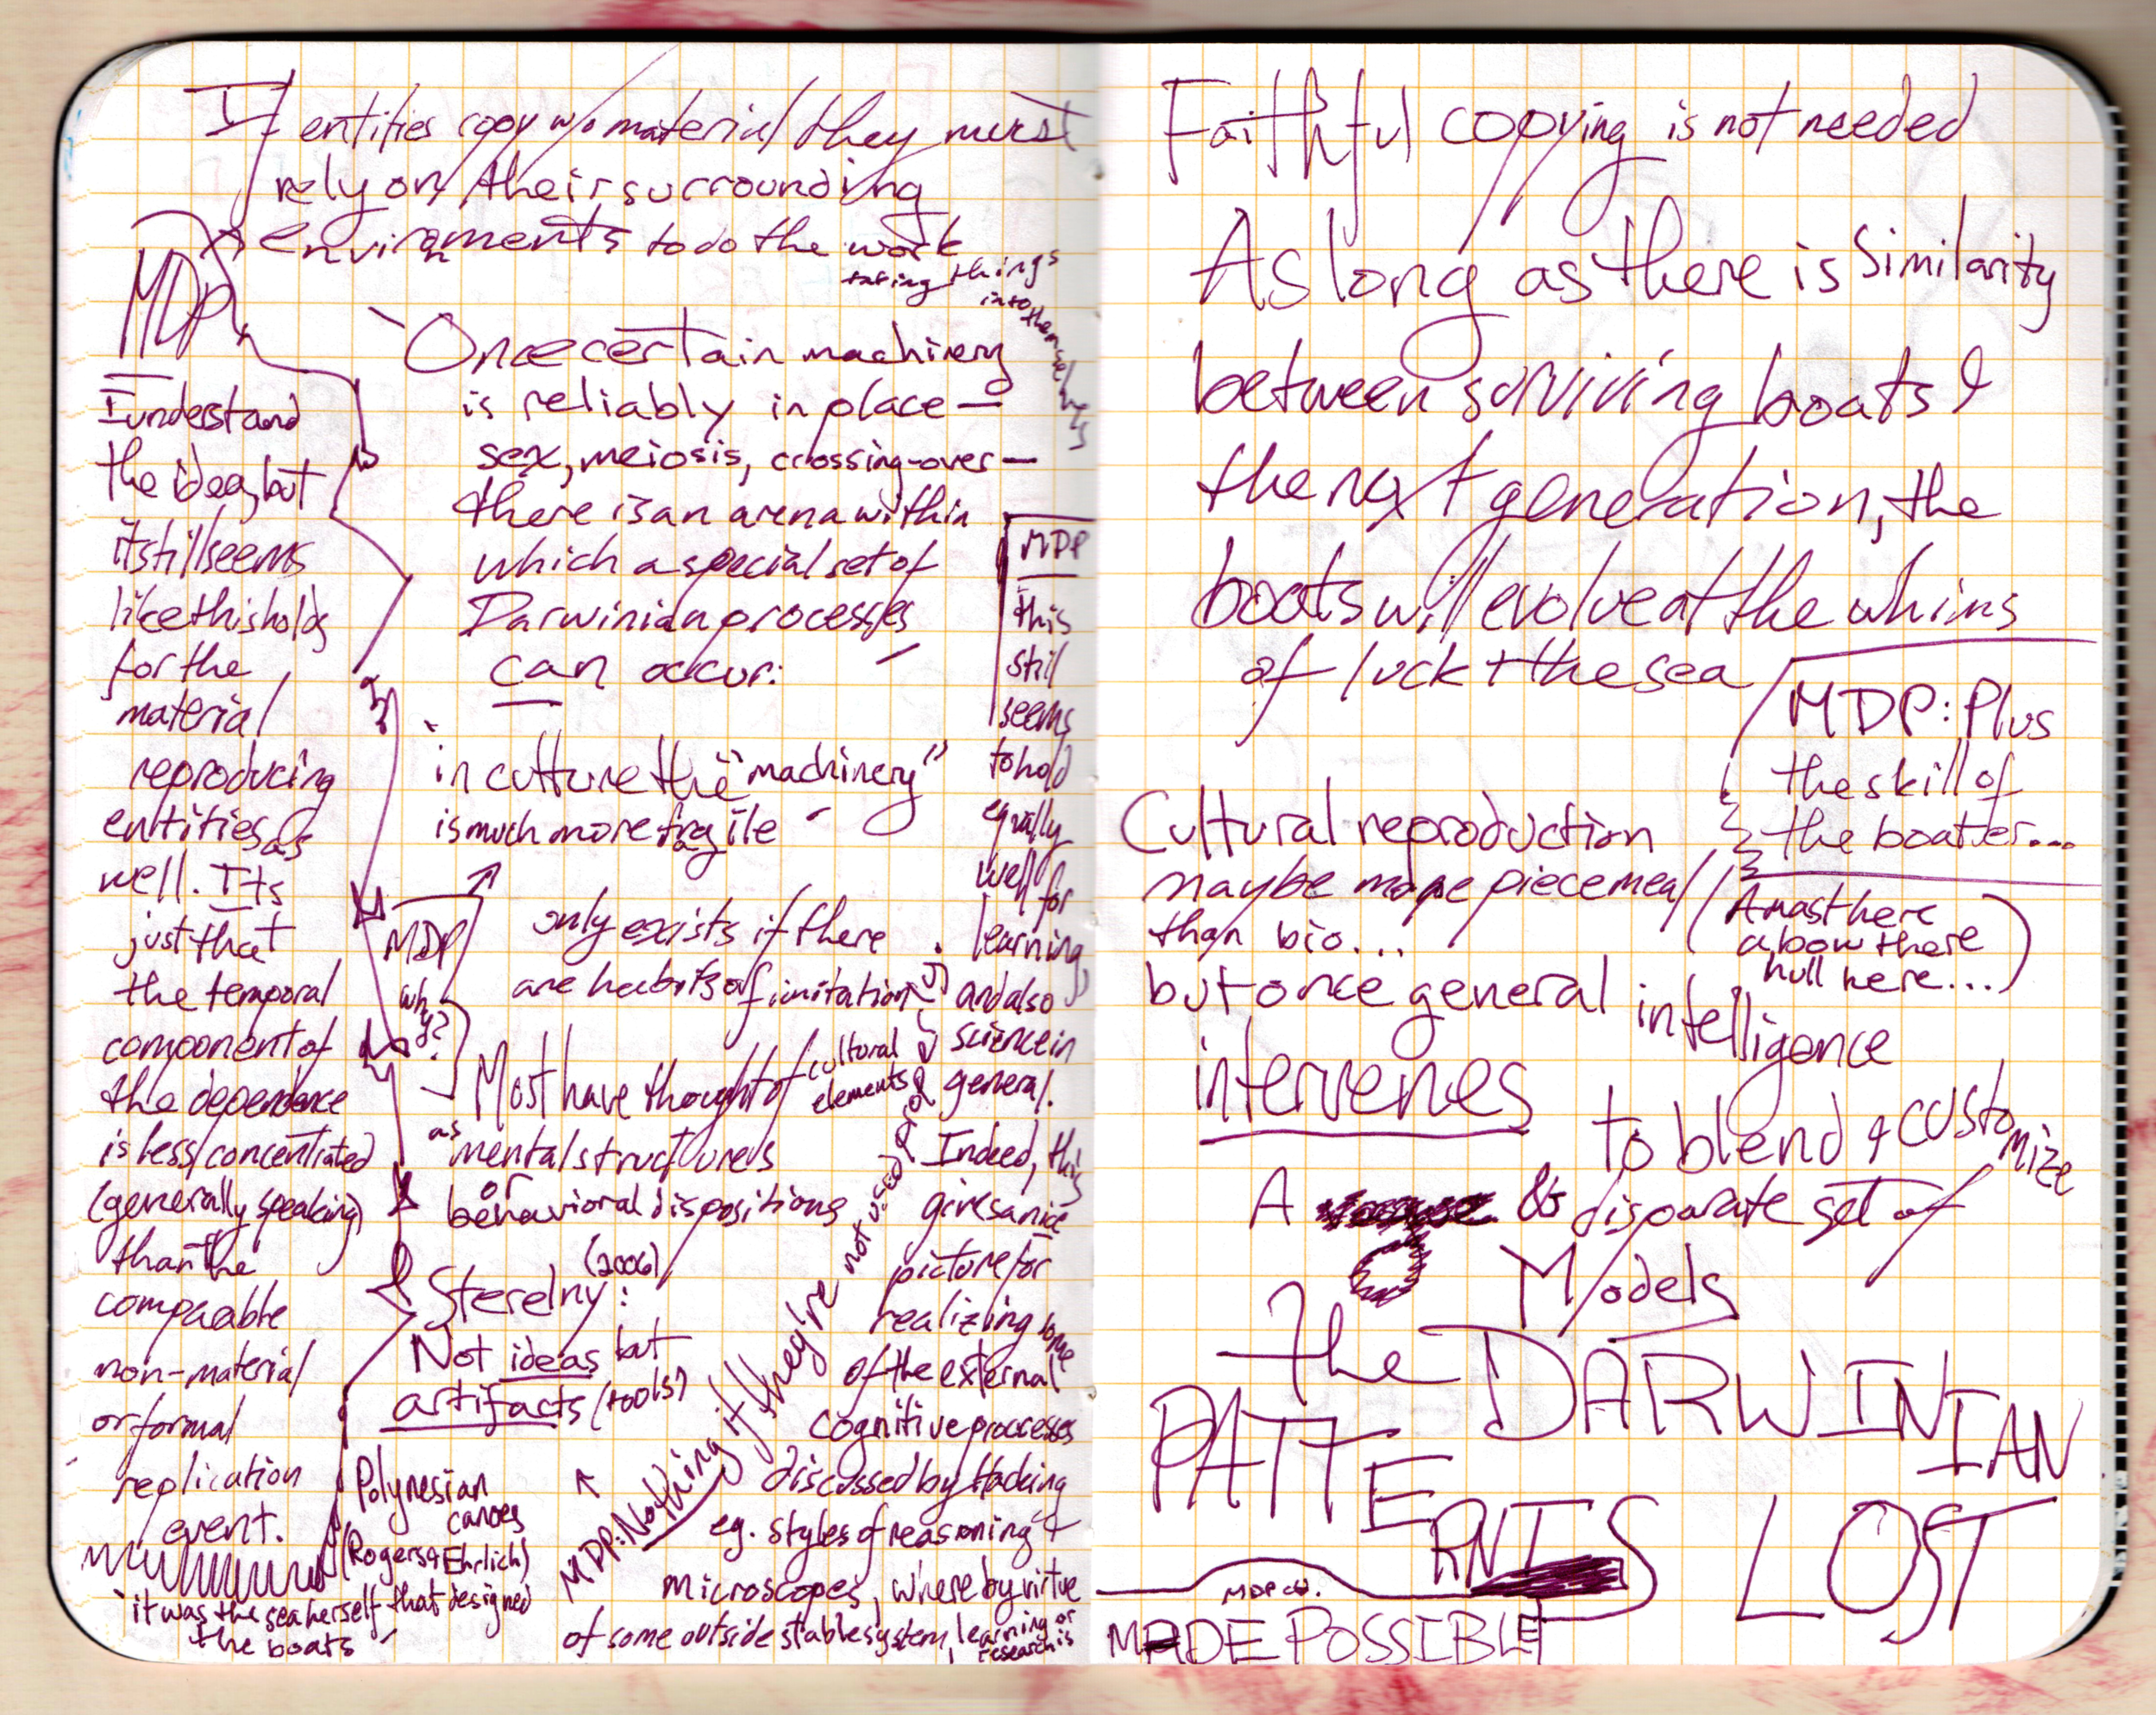 If entities copy w/o material they must
rely on their surrounding
environments to do the work
taking things
into themselves
MDP
I understand
the idea, but
it still seems
like this holds
for the
material
reproducing
entities as
well. Its
just that
the temporal
component of
the dependence
is less concentrated
(generally speaking)
than the
comparable
non-material
or formal
replication
event.
"Once certain machinery
is reliably in place —
sex, meiosis, crossing-over —
there is an arena within
which a special set of
Darwinian processes
can occur:
in culture the "machinery"
is much more fragile
MDP
why?
only exists if there
are habits of imitation
Most have thought of cultural
elements
as mental structures
or
behavioral dispositions
Sterelny (2006):
Not ideas but
artifacts (tools?)
MDP: Nothing if they're not used
Polynesian
canoes
(Rogers & Ehrlich)
"it was the sea herself that designed
the boats"
MDP
this
still
seems
to hold
equally
well for
learning,
and also
science in
general.
Indeed, this
gives a nice
picture for
realizing some
of the external
cognitive processes
discussed by Hacking
eg. styles of reasoning &
microscopes, where by virtue
of some outside stable system, learning or
research is
MADE POSSIBLE
Faithful copying is not needed
As long as there is similarity
between surviving boats &
the next generation, the
boats will evolve at the whims
of luck + the sea
MDP: Plus
the skill of
the boater...
Cultural reproduction
maybe more piecemeal
than bio...
(A mast here
a bow there
hull here...)
but once general intelligence
intervenes
to blend & customize
A disparate set of
Models
the DARWINIAN
PATTERN IS LOST